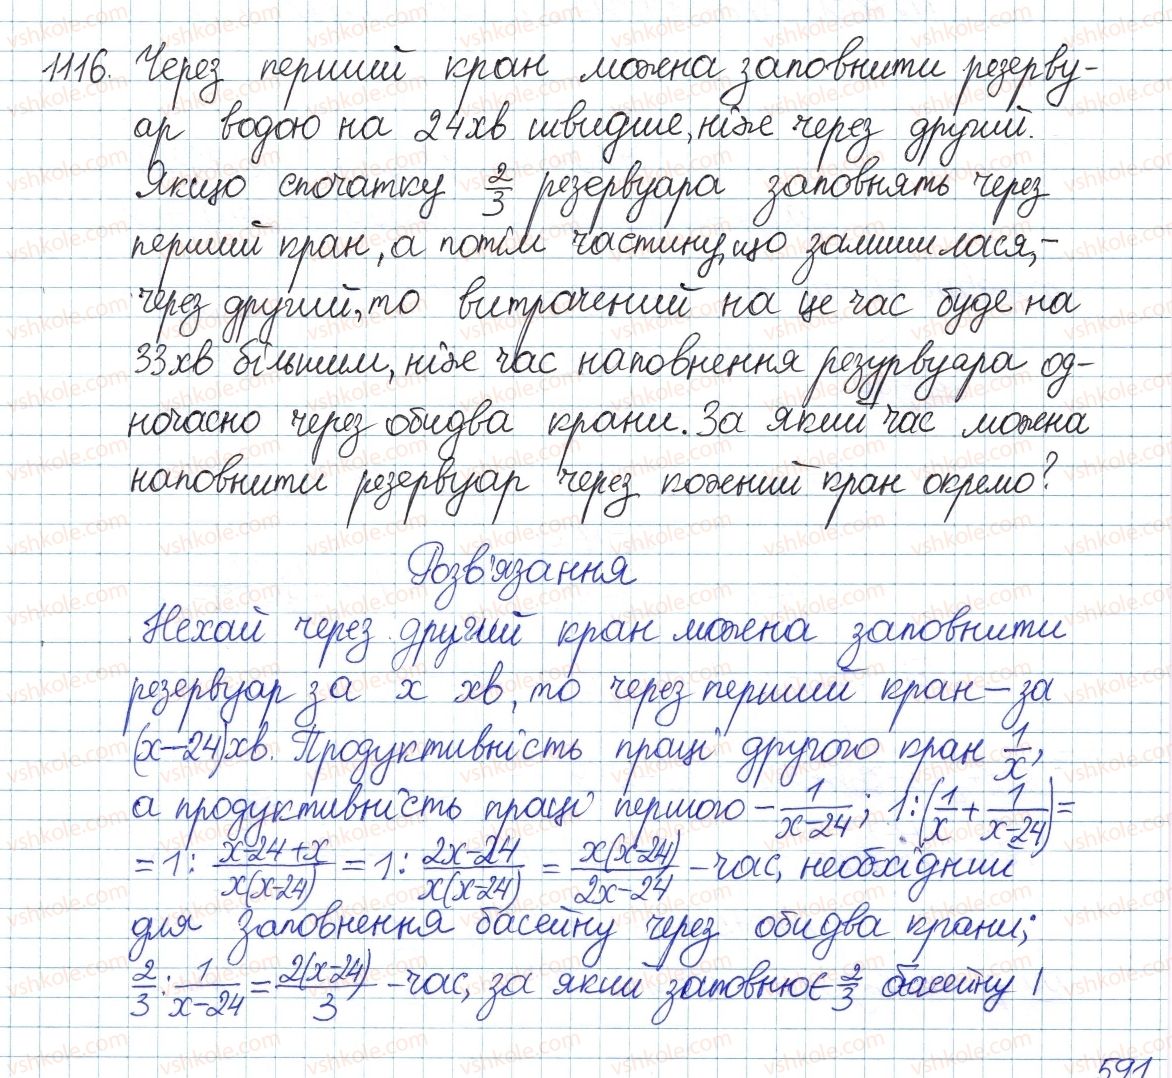 1116. Через перший кран можна заповнити резерву-
ар водою на 24хв швидше, ніж через другий.
Якщо спочатку 2/3 резервуара заповнять через
перший кран, а потім частину, що залишилася, -
через другий, то витрачений на це час буде на
33хв більшим, ніж час наповнення резурвуара од-
ночасно через обидва крани. За який час можна
наповнити резервуар через кожний кран окремо?
Розв'язання
Нехай через другий кран можна заповнити
резервуар за x хв, то через перший кран – за
(x–24)хв. Продуктивність праці другого кран 1/x,
а продуктивність праці першого – 1/(x–24); 1:(1/x + 1/(x–24)) =
= 1 : (x–24+x)/(x(x–24)) = 1 : (2x–24)/(x(x–24)) = x(x–24)/(2x–24) – час, необхідний
для заповнення басейну через обидва крани;
2/3 : 1/(x–24) = 2(x–24)/3 – час, за який заповнює 2/3 басейну I
591
vshkole.com